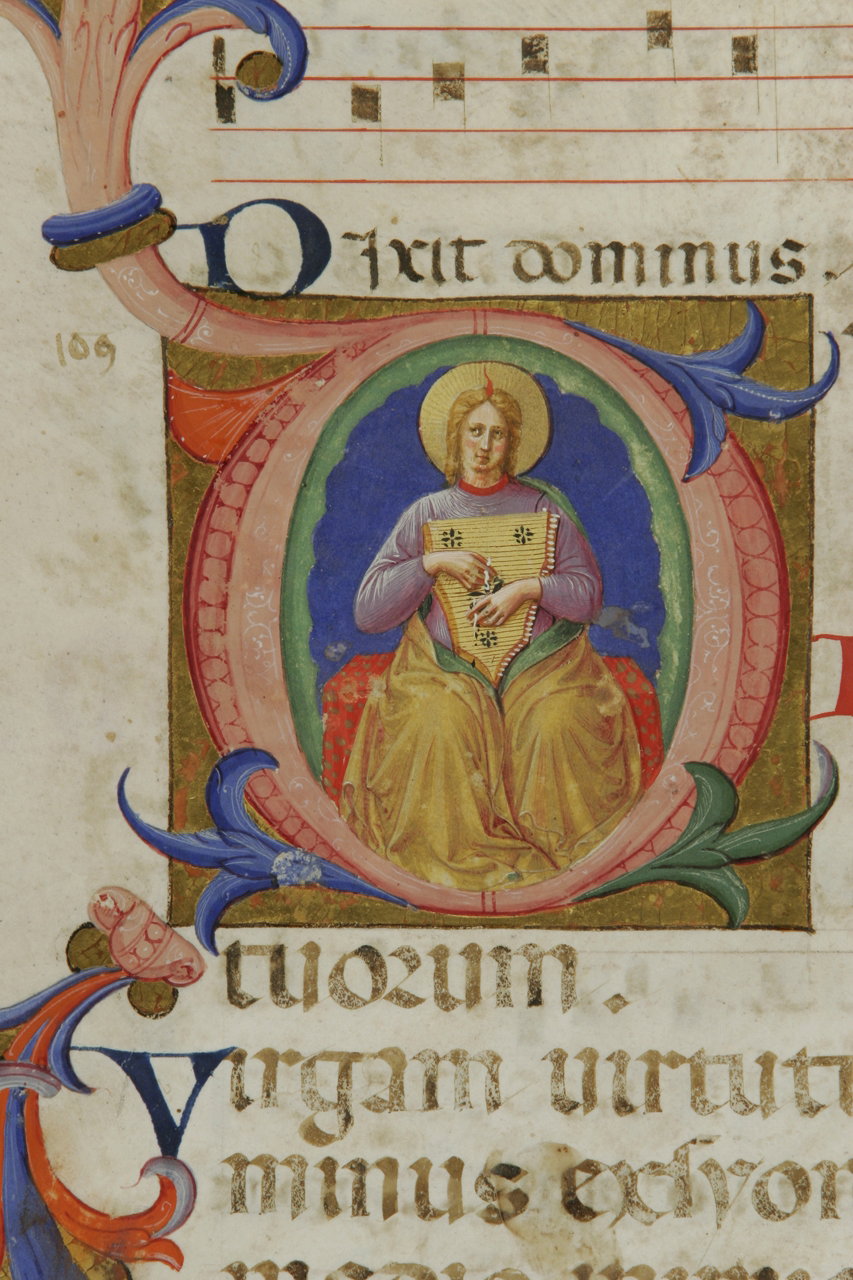 Dixit dominus.
109
D
tuorum.
Virgam uirtut
minus ex syon